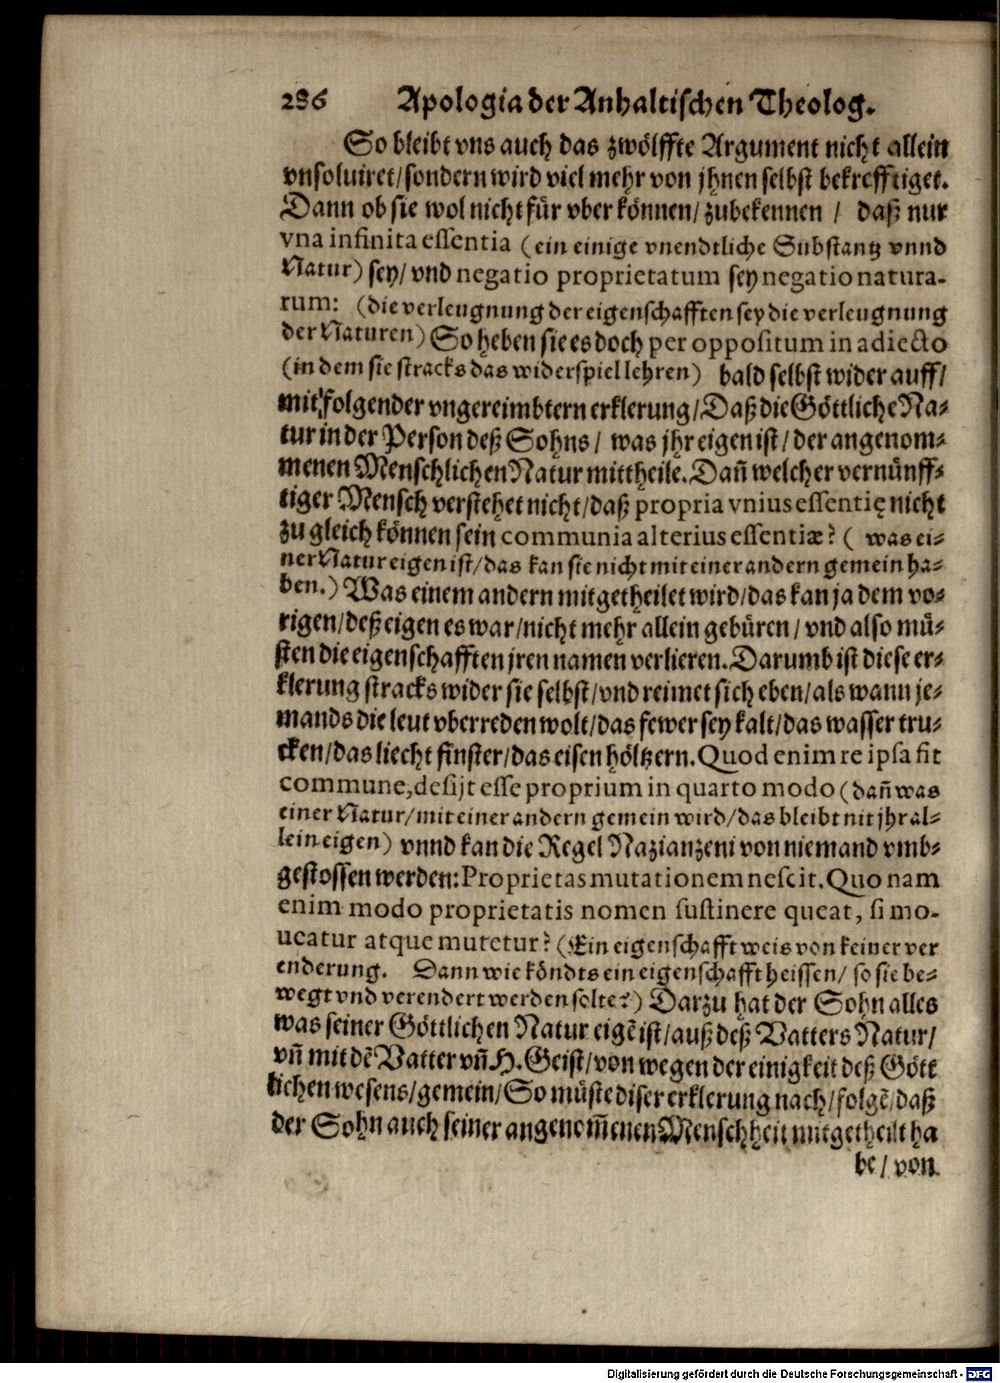 286 Apologia der Anhaltischen Theolog.
So bleibt vns auch das zwölffte Argument nicht allein
vnsoluiret/sondern wird viel mehr von jhnen selbst bekrefftiget.
Dann ob sie wol nicht für vber können/zubekennen / daß nur
vna infinita essentia (ein einige vnendtliche Substantz vnnd
Natur) sey/vnd negatio proprietatum sey negatio natura-
rum: (die verleugnung der eigenschafften sey die verleugnung
der Naturen) So heben sie es doch per oppositum in adiecto
(in dem sie stracks das widerspiel lehren) bald selbst wider auff/
mit folgender vngereimbtern erklerung/Daß die Göttliche Na-
tur in der Person deß Sohns/ was jhr eigen ist/der angenom-
menen Menschlichen Natur mittheile. Dañ welcher vernünff-
tiger Mensch verstehet nicht/daß propria vnius essentię nicht
zu gleich können sein communia alterius essentiæ? ( was ei-
ner Natur eigen ist/das kan sie nicht mit einer andern gemein ha-
ben.) Was einem andern mitgetheilet wird/das kan ja dem vo-
rigen/deß eigen es war/nicht mehr allein gebüren/vnd also mü-
sten die eigenschafften jren namen verlieren. Darumb ist diese er-
klerung stracks wider sie selbst/vnd reimet sich eben/als wann je-
mands die leut vberreden wolt/das fewer sey kalt/das wasser tru-
cken/das liecht finster/das eisen höltzern. Quod enim re ipsa fit
commune, desijt esse proprium in quarto modo (dañ was
einer Natur/mit einer andern gemein wird/das bleibt nit jhr al-
lein eigen) vnnd kan die Regel Nazianzeni von niemand vmb-
gestossen werden: Proprietas mutationem nescit. Quo nam
enim modo proprietatis nomen sustinere queat, si mo-
ueatur atque mutetur? (Ein eigenschafft weis von keiner ver
enderung. Dann wie köndts ein eigenschafft heissen/ so sie be-
wegt vnd verendert werden solte?) Darzu hat der Sohn alles
was seiner Göttlichen Natur eigẽ ist/auß deß Vatters Natur/
vñ mit dẽ Vatter vñ H. Geist/von wegen der einigkeit deß Gött
lichen wesens/gemein/So müste diser erklerung nach/folgẽ/daß
der Sohn auch seiner angenom̃enen Menschheit mitgetheilt ha
be/von
Digitalisierung gefördert durch die Deutsche Forschungsgemeinschaft - DFG